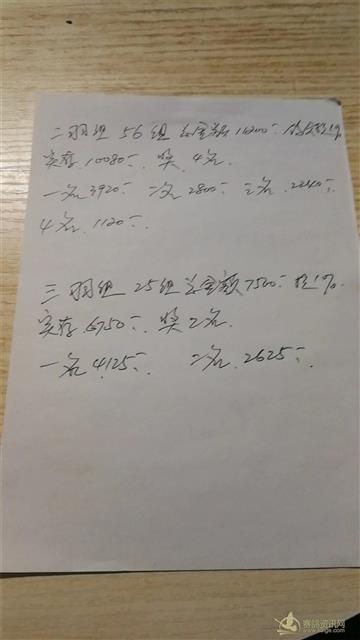 二羽组 56组 总金额 11200元 抽 10%
实存 10080元, 奖 4名.
一名 3920元 二名 2800元 三名. 2240元
4名. 1120元.
三羽组 25组 总金额 7500元 抽 10%
实存 6750元, 奖 2名.
一名 4125元. 二名. 2625元.
赛鸽资讯网